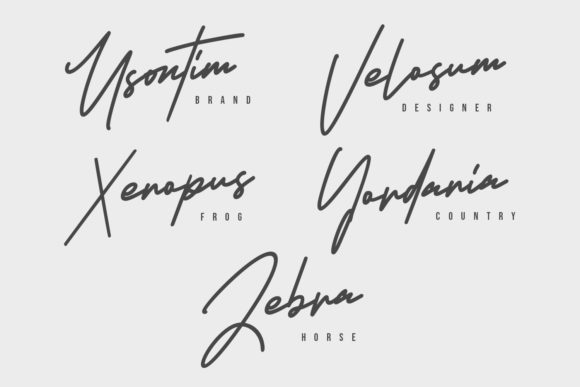 Usontim
BRAND
Velosum
DESIGNER
Xenopus
FROG
Yordania
COUNTRY
Zebra
HORSE